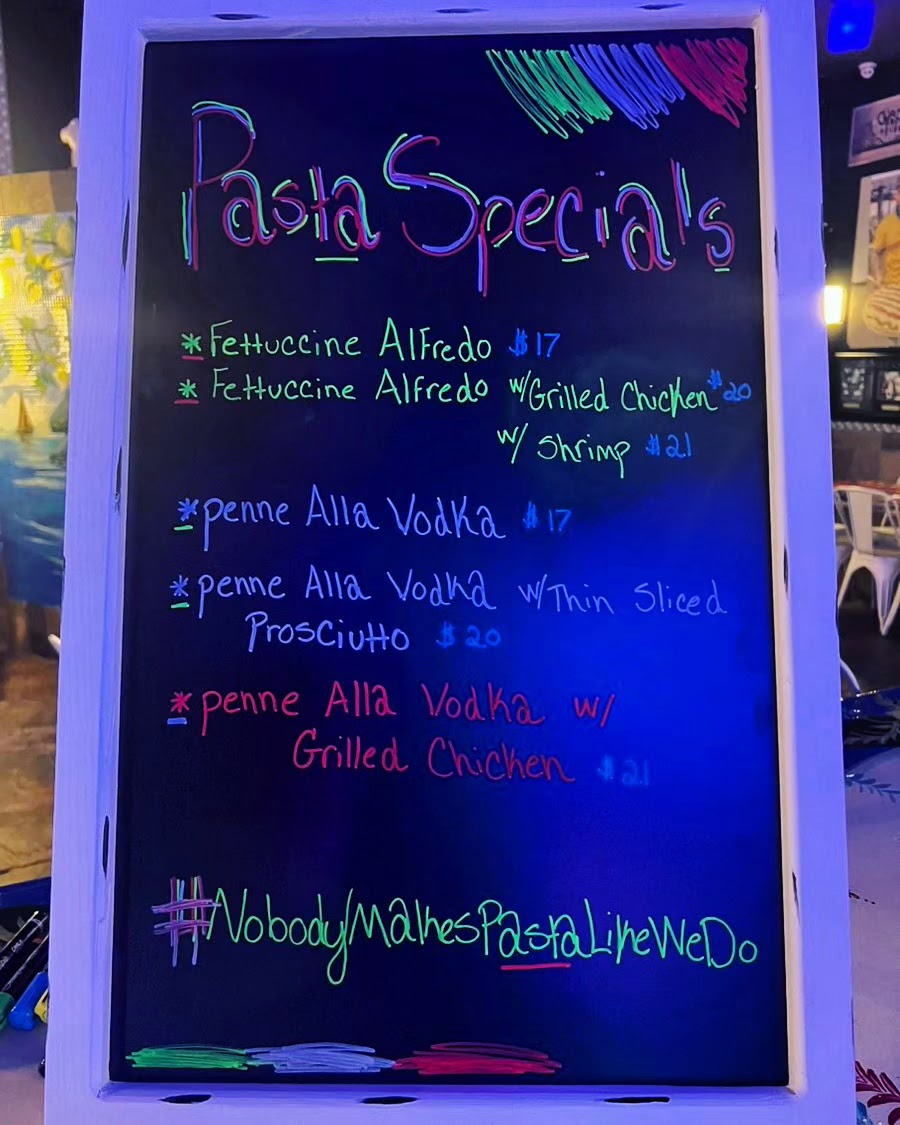 Pasta Specials
* Fettuccine Alfredo $17
* Fettuccine Alfredo w/Grilled Chicken $20
w/ Shrimp $21
* penne Alla Vodka $17
* penne Alla Vodka w/Thin Sliced
Prosciutto $20
* penne Alla Vodka w/
Grilled Chicken $21
#NobodyMakesPastaLikeWeDo